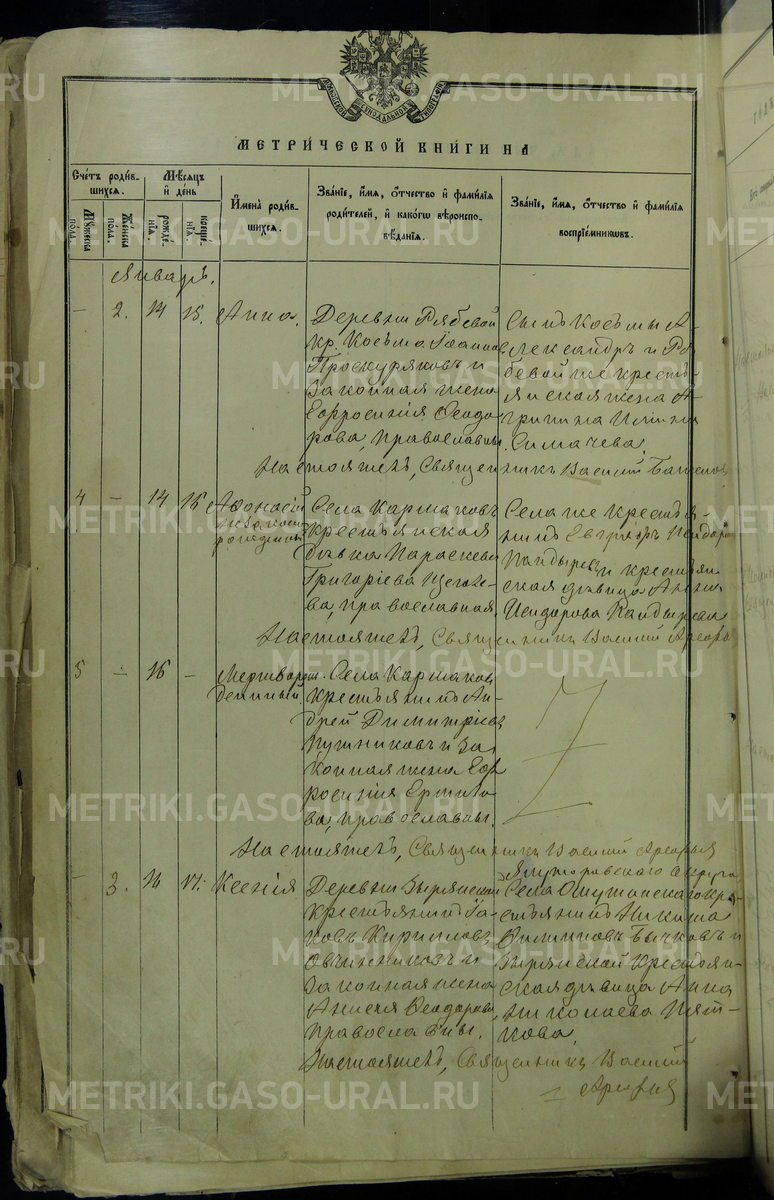 МЕТРИ́ЧЕСКОЙ КНИ́ГИ НА
Сче́тъ роди́в-
шихся.
Мѣ́сяцъ
и҆ де́нь
И҆мена̀ роди́в-
шихся.
Зва́нїе, и҆́мя, ѻ҆́тчество и҆ фами́лїя
роди́телей, и҆ како́гѡ вѣроиспо-
вѣ́данїя.
Зва́нїе, и҆́мя, ѻ҆́тчество и҆ фами́лїя
воспрїе́мникѡвъ.
Му́жеска пола.
Же́нска пола.
рожде́нїѧ.
креще́нїѧ.
Январь.
- 2. 14 15. Анна.
Деревни Рябовой
кр. Косьма Іоаннов
Проскуряковъ и
законная жена
Евфросинія Ѳеодо-
рова, православны.
Сынъ Косьмы А-
лександръ и Ря-
бевой же кресть-
янская жена А-
грипина
Симачева.
Настоятель, Священникъ Василій
4 - 14 16 Аѳанасій
незаконно
рожденный
Села Кармаковъ
крестьянская
дѣвка Параскева
Григоріева
ва, православная.
Села же крестья-
нинъ Евграфъ
и крестьян-
ская дѣвица Анна
Исидорова
Настоятель, Священникъ Василій
5 - 16 - Мертворож-
денный
Села Кармаков
крестьянинъ Ан-
дрей Димитріевъ
Путниковъ и за-
конная жена Евф-
росинія
ва, православны.
Настоятель, Священникъ Василій
Ялуторовскаго округа
- 3. 16 17. Ксенія
Деревни Зырянской
крестьянинъ Іа-
ковъ Кирилловъ
Овчинниковъ и
законная жена
Анисья Ѳеодорова,
православны.
Села Омутинскаго кре-
стьянинъ Никита
Филиповъ Бычковъ и
Зырянской крестьян-
ская дѣвица Анна
Николаева Пят-
кова.
Настоятель, Священникъ Василій
METRIKI.GASO-URAL.RU